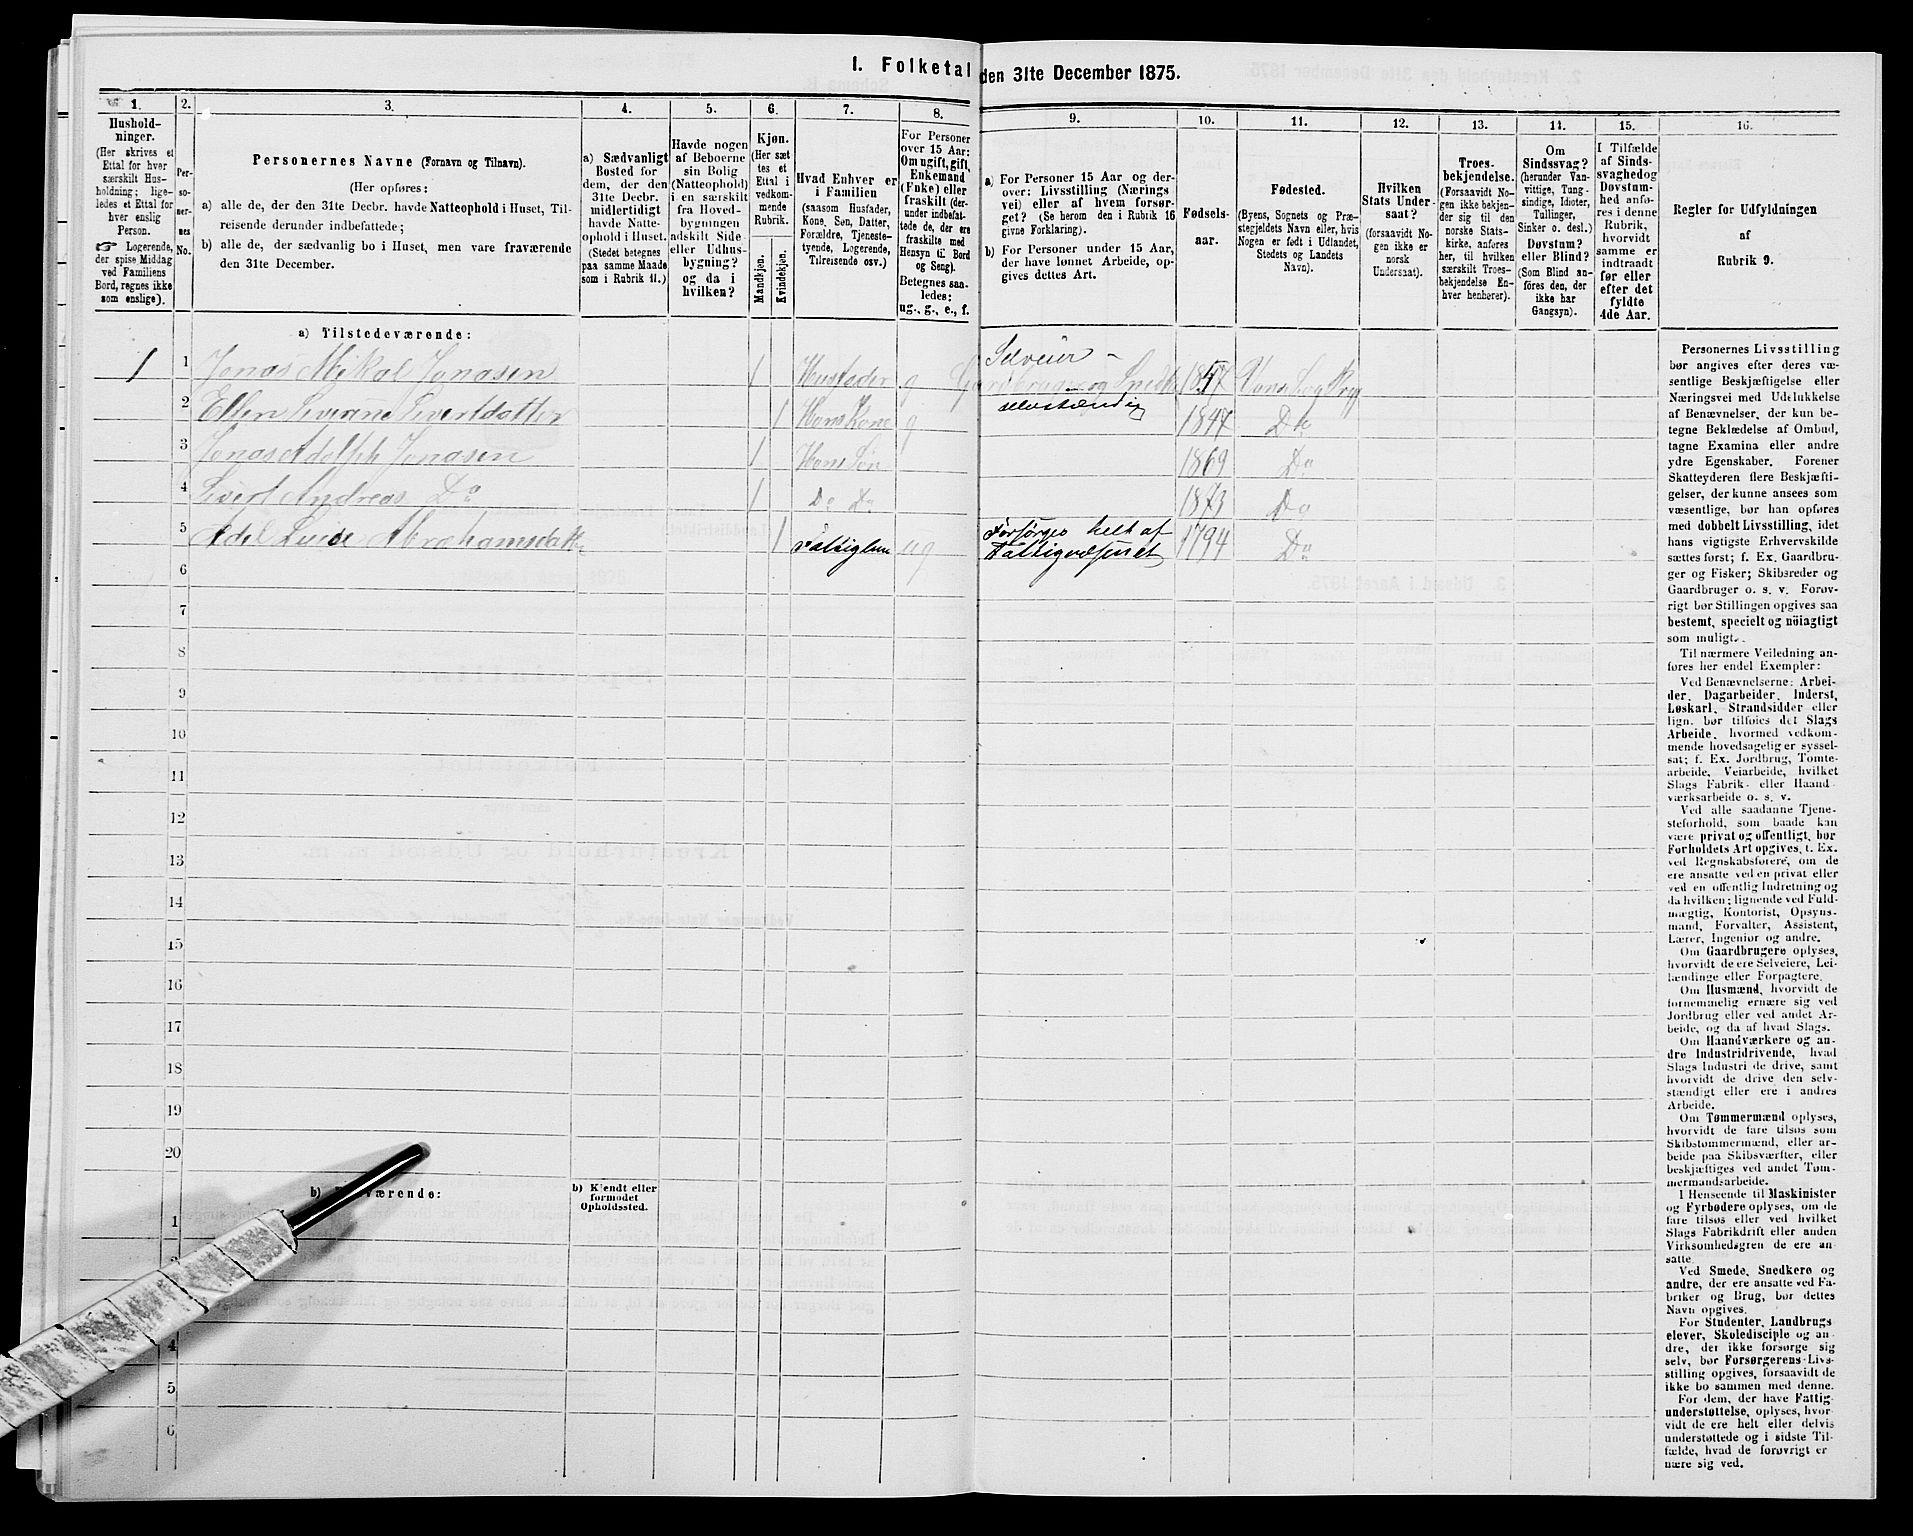 1. Folketal den 31te December 1875.
1.
Hushold-
ninger.
(Her skrives et
Ettal for hver
særskilt Hus-
holdning; lige-
ledes et Ettal for
hver enslig
Person.
☞ Logerende,
der spise Middag
ved Familiens
Bord, regnes ikke
som enslige).
2.
Per-
so-
ner-
nes
No.
3.
Personernes Navne (Fornavn og Tilnavn).
(Her opføres:
a) alle de, der den 31te Decbr. havde Natteophold i Huset, Til-
reisende derunder indbefattede;
b) alle de, der sædvanlig bo i Huset, men vare fraværende
den 31te December.
4.
a) Sædvanligt
Bosted for
dem, der den
31te Decbr.
midlertidigt
havde Natte-
ophold i Huset.
(Stedet betegnes
paa samme Maade
som i Rubrik 11.)
5.
Havde nogen
af Beboerne
sin Bolig
(Natteophold)
i en særskilt
fra Hoved-
bygningen
adskilt Side-
eller Udhus-
bygning?
og da i
hvilken?
6.
Kjøn.
(Her sæt
tes et
Ettal i
vedkom-
mende
Rubrik.
Mandkjøn.
Kvindekjøn.
7.
Hvad Enhver er
i Familien
(saasom Husfader,
Kone, Søn, Datter,
Forældre, Tjeneste-
tyende, Logerende,
Tilreisende osv.)
8.
For Personer
over 15 Aar:
Om ugift, gift,
Enkemand
(Enke) eller
fraskilt (der-
under indbefat-
tede de, der ere
fraskilte med
Hensyn til Bord
og Seng).
Betegnes saa-
ledes:
ug., g., e., f.
9.
a) For Personer 15 Aar og der-
over: Livsstilling (Nærings
vei) eller af hvem forsør-
get? (Se herom den i Rubrik 16
givne Forklaring).
b) For Personer under 15 Aar,
der have lønnet Arbeide, op-
gives dettes Art.
10.
Fødsels-
aar.
11.
Fødested.
(Byens, Sognets og Præ-
stegjeldets Navn eller, hvis
Nogen er født i Udlandet,
Stedets og Landets
Navn).
12.
Hvilken
Stats Under-
saat?
(forsaavidt No-
gen ikke er
norsk
Undersaat).
13.
Troes-
bekjendelse.
(Forsaavidt No-
gen ikke bekjen-
der sig til den
norske Stats-
kirke, anføres
her, til hvilken
særskilt Troes-
bekjendelse En-
hver henhører).
14.
Om
Sindssvag?
(herunder Van-
vittige, Tung-
sindige, Idioter,
Tullinger,
Sinker o. desl.).
Døvstum?
eller Blind?
(Som Blind an-
føres den, der
ikke har
Gangsyn).
15.
I Tilfælde
af Sinds-
svaghedog
Døvstum-
hed anfø-
res i denne
Rubrik,
hvorvidt
samme er
indtraadt
før eller
efter det
fyldte
4de Aar.
16.
Regler for Udfyldningen
af
Rubrik 9.
a) Tilstedeværende:
1 1 Jonas Mikal Jonasen 1 Husfader g Selveier -
Gaardbruger og Snedker 18 7 Vans Sog
2 Ellen Severine Sivertdatter 1 Hans Kone g selvstændig 1847 Do
3 Jonas Adolph Jonasen 1 Hans Søn 1869 Do
4 Sivert Andreas Do 1 Do Do 1873 Do
5 Adel Abrahamsdatter 1 Fattiglem ug Forsørges helt af
Fattigvæsenet 1794 Do
6
7
8
9
10
11
12
13
14
15
16
17
18
19
20
b) værende:
b) Kjendt eller
formodet
Opholdssted.
1
4
5
6
Personernes Livsstilling
bør angives efter deres væ-
sentlige Beskjæftigelse eller
Næringsvei med Udelukkelse
af Benævnelser, der kun be-
tegne Beklædelse af Ombud,
tagne Examina eller andre
ydre Egenskaber. Forener
Skatteyderen flere Beskjæfti-
gelser, der kunne ansees som
væsentlige, bør han opføres
med dobbelt Livsstilling, idet
hans vigtigste Erhvervskilde
sættes først; f. Ex. Gaardbru-
ger og Fisker; Skibsreder og
Gaardbruger o. s. v. Forøv-
rigt bør Stillingen opgives saa
bestemt, specielt og nöiagtigt
som muligt.
Til nærmere Veiledning an-
føres her endel Exempler:
Ved Benævnelserne: Arbei-
der, Dagarbeider, Inderst,
Løskarl, Strandsidder eller
lign. bør tilføies det Slags
Arbeide, hvormed vedkom-
mende hovedsagelig er syssel-
sat; f. Ex. Jordbrug, Tomte-
arbeide, Veiarbeide, hvilket
Slags Fabrik- eller Haand-
værksarbeide o. s. v.
Ved alle saadanne Tjene-
steforhold, som baade kan
være privat og offentligt, bør
Forholdets Art opgives, f. Ex.
ved Regnskabsførere, om de
ere ansatte ved en privat eller
ved en offentlig Indretning og
da hvilken; lignende ved Fuld-
mægtig, Kontorist, Opsyns-
mand, Forvalter, Assistent,
Lærer, Ingeniør og andre.
Om Gaardbrugere oplyses,
hvorvidt de ere Selveiere, Lei-
lændinge eller Forpagtere.
Om Husmænd, hvorvidt de
fornemmelig ernære sig ved
Jordbrug eller ved andet Ar-
beide, og da af hvad Slags.
Om Haandværkere og an-
dre Industridrivende, hvad
Slags Industri de drive, samt
hvorvidt de drive den selv-
stændigt eller ere i andres
Arbeide.
Om Tømmermænd oplyses,
hvorvidt de fare tilsøs som
Skibstømmermænd, eller ar-
beide paa Skibsværfter, eller
beskjæftiges ved andet Tøm-
mermandsarbeide.
I Henseende til Maskinister
og Fyrbødere oplyses, om de
fare tilsøs eller ved hvilket
Slags Fabrikdrift eller anden
Virksomhedsgren de ere an-
satte.
Ved Smede, Snedkere og
andre, der ere ansatte ved Fa-
briker og Brug, bør dettes
Navn opgives.
For Studenter, Landbrugs
elever, Skoledisciple og an-
dre, der ikke forsørge sig
selv, bør Forsørgerens Livs-
stilling opgives, forsaavidt de
ikke bo sammen med denne.
For dem, der have Fattig-
understøttelse, oplyses, hvor-
vidt de ere helt eller delvis
understøttede og i sidste Til-
fælde, hvad de forøvrigt er-
nære sig ved.